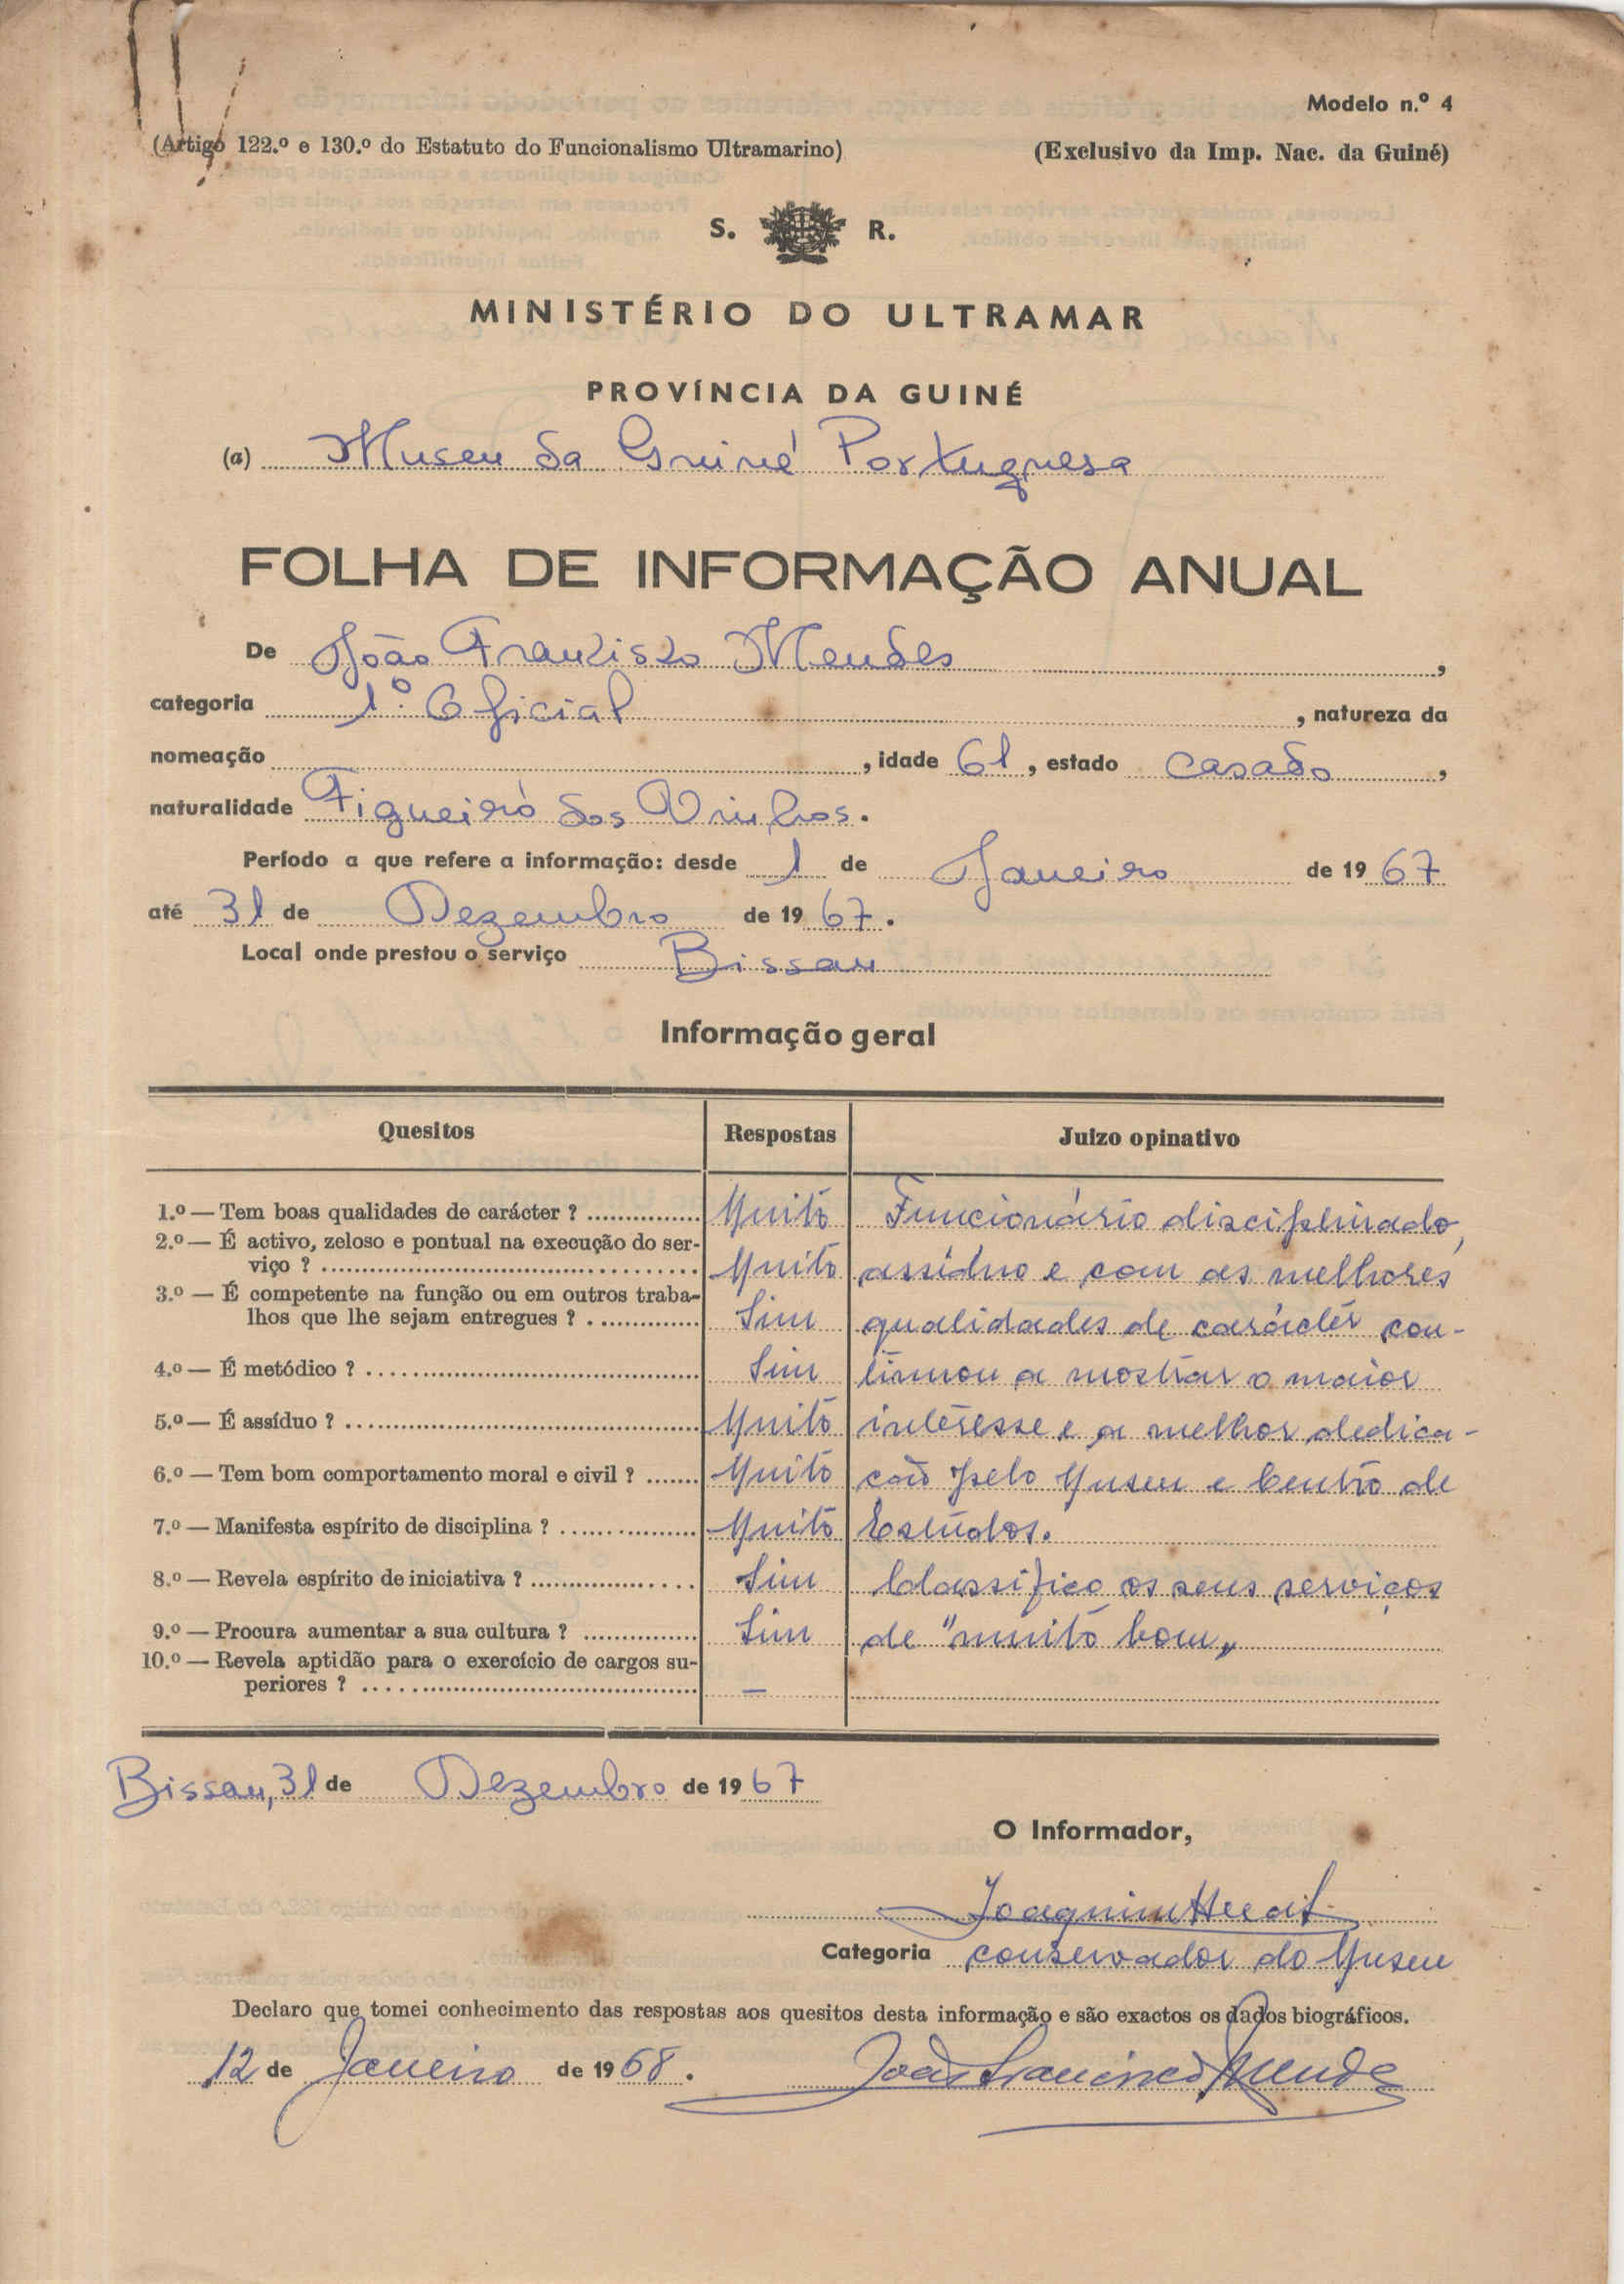 Modelo n.º 4
(Artigo 122.º e 130.º do Estatuto do Funcionalismo Ultramarino)
(Exclusivo da Imp. Nac. da Guiné)
S. R.
MINISTÉRIO DO ULTRAMAR
PROVÍNCIA DA GUINÉ
(a) Museu da Guiné Portuguesa
FOLHA DE INFORMAÇÃO ANUAL
De João Francisco Mendes,
categoria 1.º Oficial, natureza da
nomeação , idade 61, estado casado,
naturalidade Figueiró dos Vinhos.
Período a que refere a informação: desde 1 de Janeiro de 1967
até 31 de Dezembro de 1967.
Local onde prestou o serviço Bissau
Informação geral
Quesitos Respostas Juizo opinativo
1.º — Tem boas qualidades de carácter ? Muito Funcionário disciplinado,
2.º — É activo, zeloso e pontual na execução do ser-
viço ? Muito assíduo e com as melhores
3.º — É competente na função ou em outros traba-
lhos que lhe sejam entregues ? Sim qualidades de carácter con-
4.º — É metódico ? Sim tinuou a mostrar o maior
5.º — É assíduo ? Muito interesse e a melhor dedica-
6.º — Tem bom comportamento moral e civil ? Muito ção pelo Museu e Centro de
7.º — Manifesta espírito de disciplina ? Muito Estudos.
8.º — Revela espírito de iniciativa ? Sim Classifico os seus serviços
9.º — Procura aumentar a sua cultura ? Sim de "muito bom"
10.º — Revela aptidão para o exercício de cargos su-
periores ? —
Bissau, 31 de Dezembro de 1967
O Informador,
Joaquim
Categoria conservador do Museu
Declaro que tomei conhecimento das respostas aos quesitos desta informação e são exactos os dados biográficos.
12 de Janeiro de 1968. João Francisco Mendes